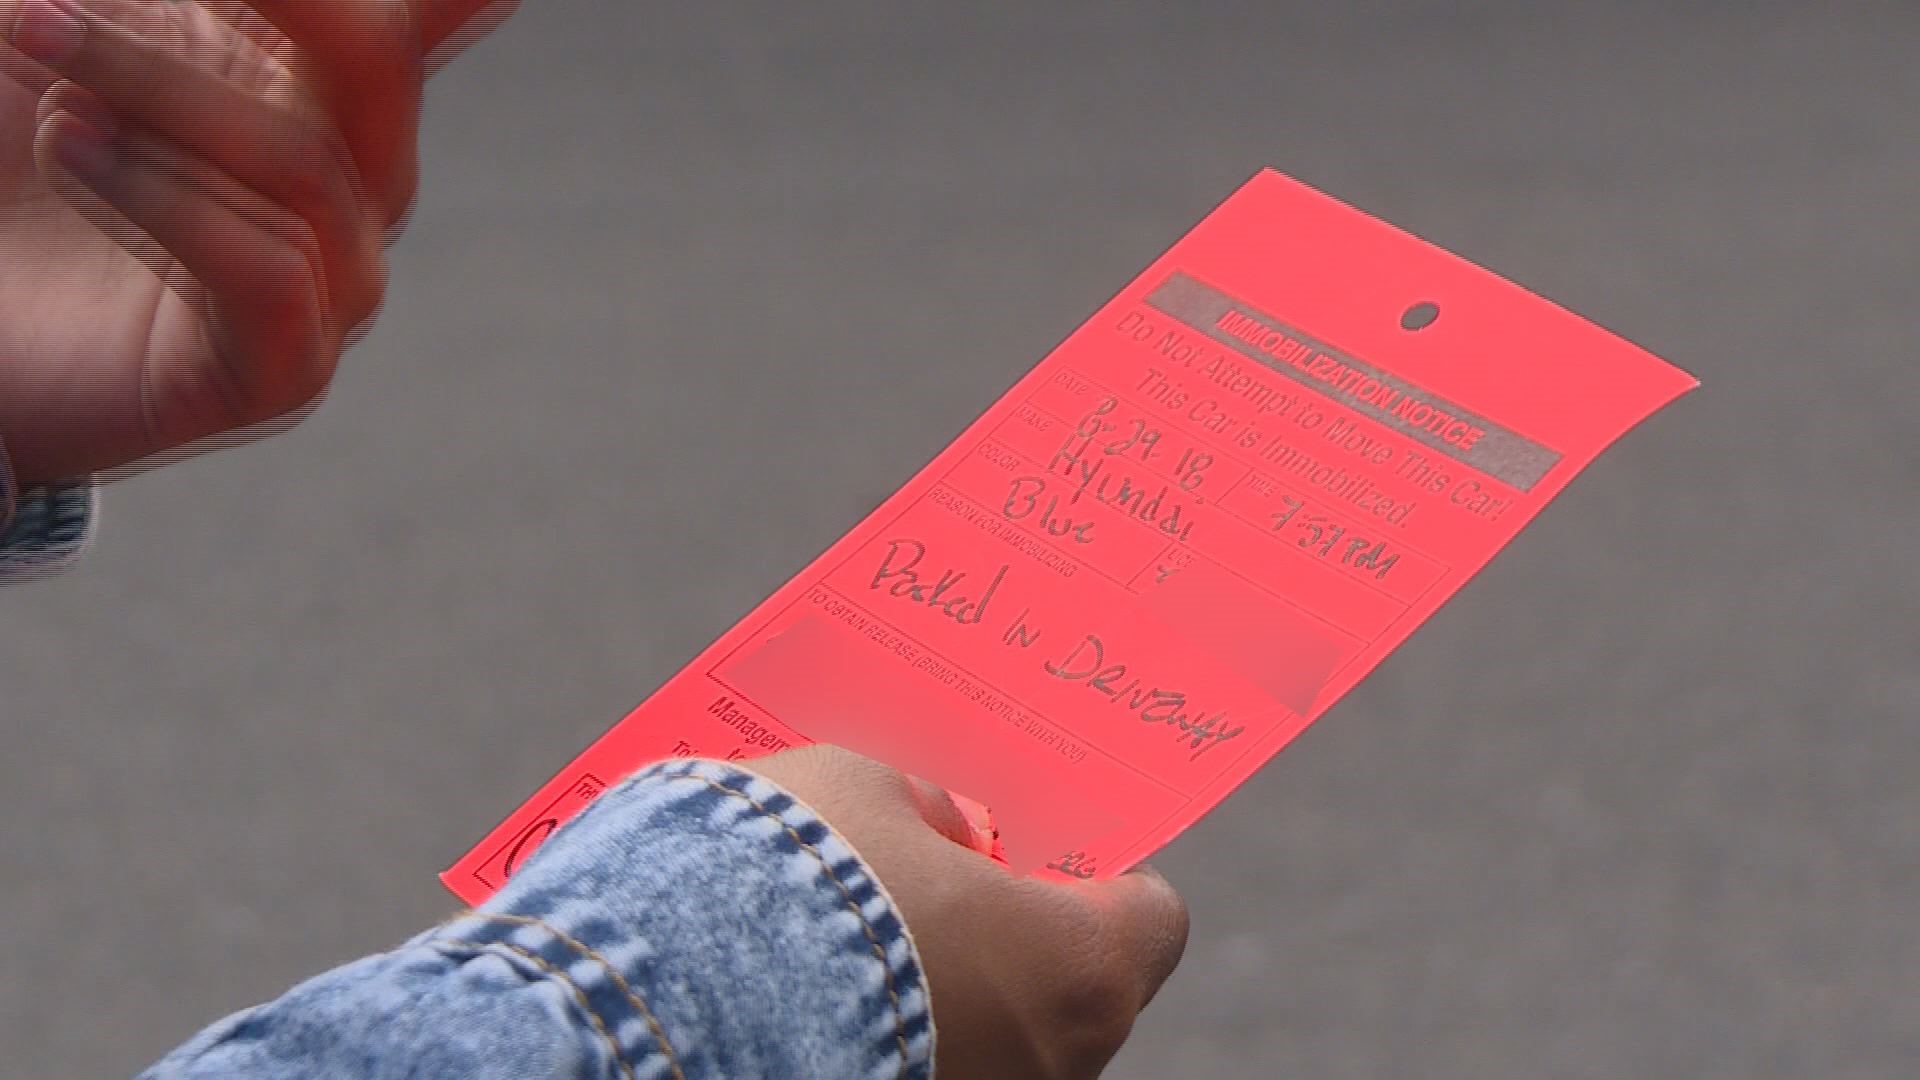 IMMOBILIZATION NOTICE
Do Not Attempt to Move This Car!
This Car is Immobilized.
DATE 8-29-18 TIME 7:57 PM
MAKE Hyundai
COLOR Blue LICE
REASON FOR IMMOBILIZING
Parked IN DRIVEWAY
TO OBTAIN RELEASE (BRING THIS NOTICE WITH YOU)
Managem